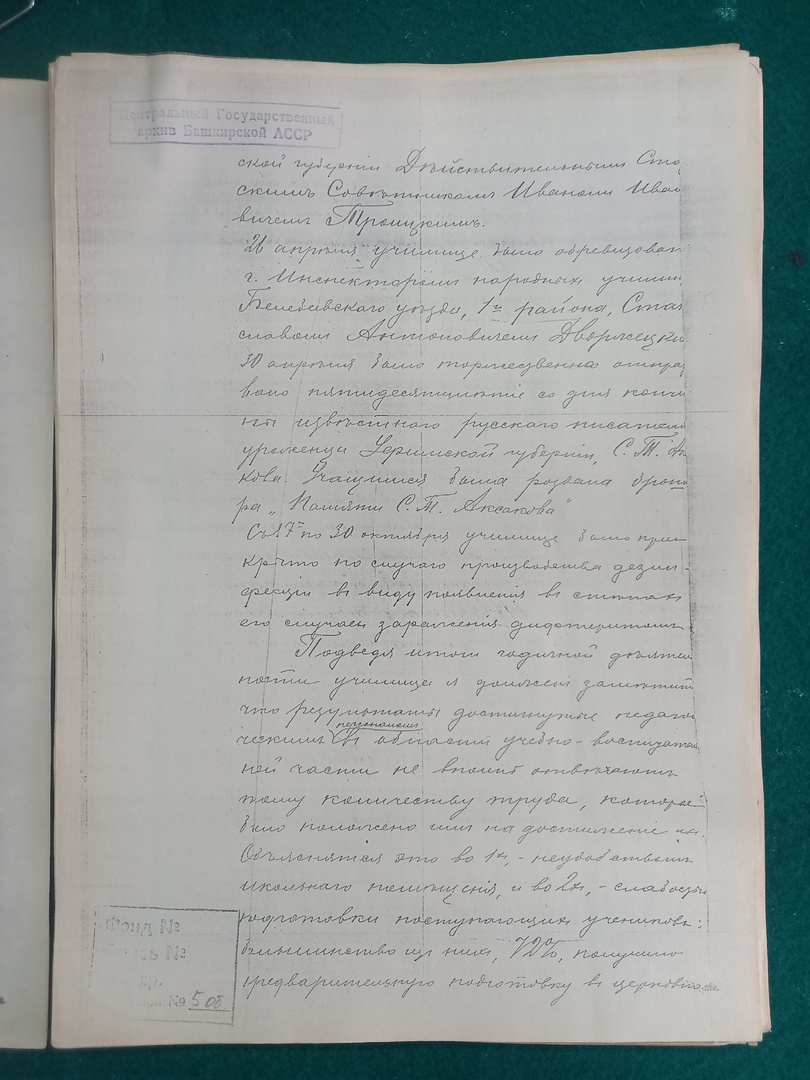 Центральный Государственный
архив Башкирской АССР
ской губернiи Дѣйствительнымъ Ста
скимъ Совѣтникомъ Иваномъ Ива
вичемъ Троицкимъ.
26 апрѣля училище было обревизован
г. Инспекторомъ народныхъ учили
Белебеевскаго уѣзда, 1го района, Ста
славомъ Антоновичемъ Дворжецки
30 апрѣля было торжественно отпра
вано пятидесятилѣтiе со дня кончи
ны извѣстнаго русскаго писателя
уроженца Уфимской губернiи, С. Т. Ак
кова. Учащимся была роздана брош
ра „Памяти С. Т. Аксакова"
Съ 17го по 30 октября училище было при
крыто по случаю производства дезин-
фекцiи въ виду появленiя въ стѣнах
его случаев зараженiя дифтеритомъ
Подведя итоги годичной дѣятел
ности училища я долженъ замѣтить
что результаты достигнутые педаго
ческимъ персоналомъ въ области учебно-воспитател
ной части не вполнѣ отвѣчаютъ
тому количеству труда, которое
было положено ими на достиженiе их.
Объясняется это во 1х, - неудобствомъ
школьнаго помѣщенiя, и во 2х, - слабостью
подготовки поступающихъ учениковъ:
большинство изъ них, 72%, получило
предварительную подготовку въ церковно
Фонд №
Опись №
№ 5 об